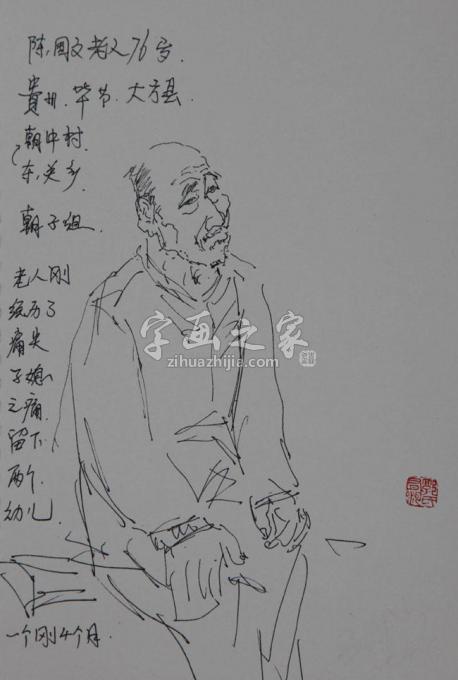 陈国文老人76岁.
貴州.毕节.大方县.
朝中村.
东关乡.
朝子组.
老人刚
经历了
痛失
子媳
之痛.
留下
两个
幼儿.
一个刚4个月.
字画之家
zihuazhijia.com